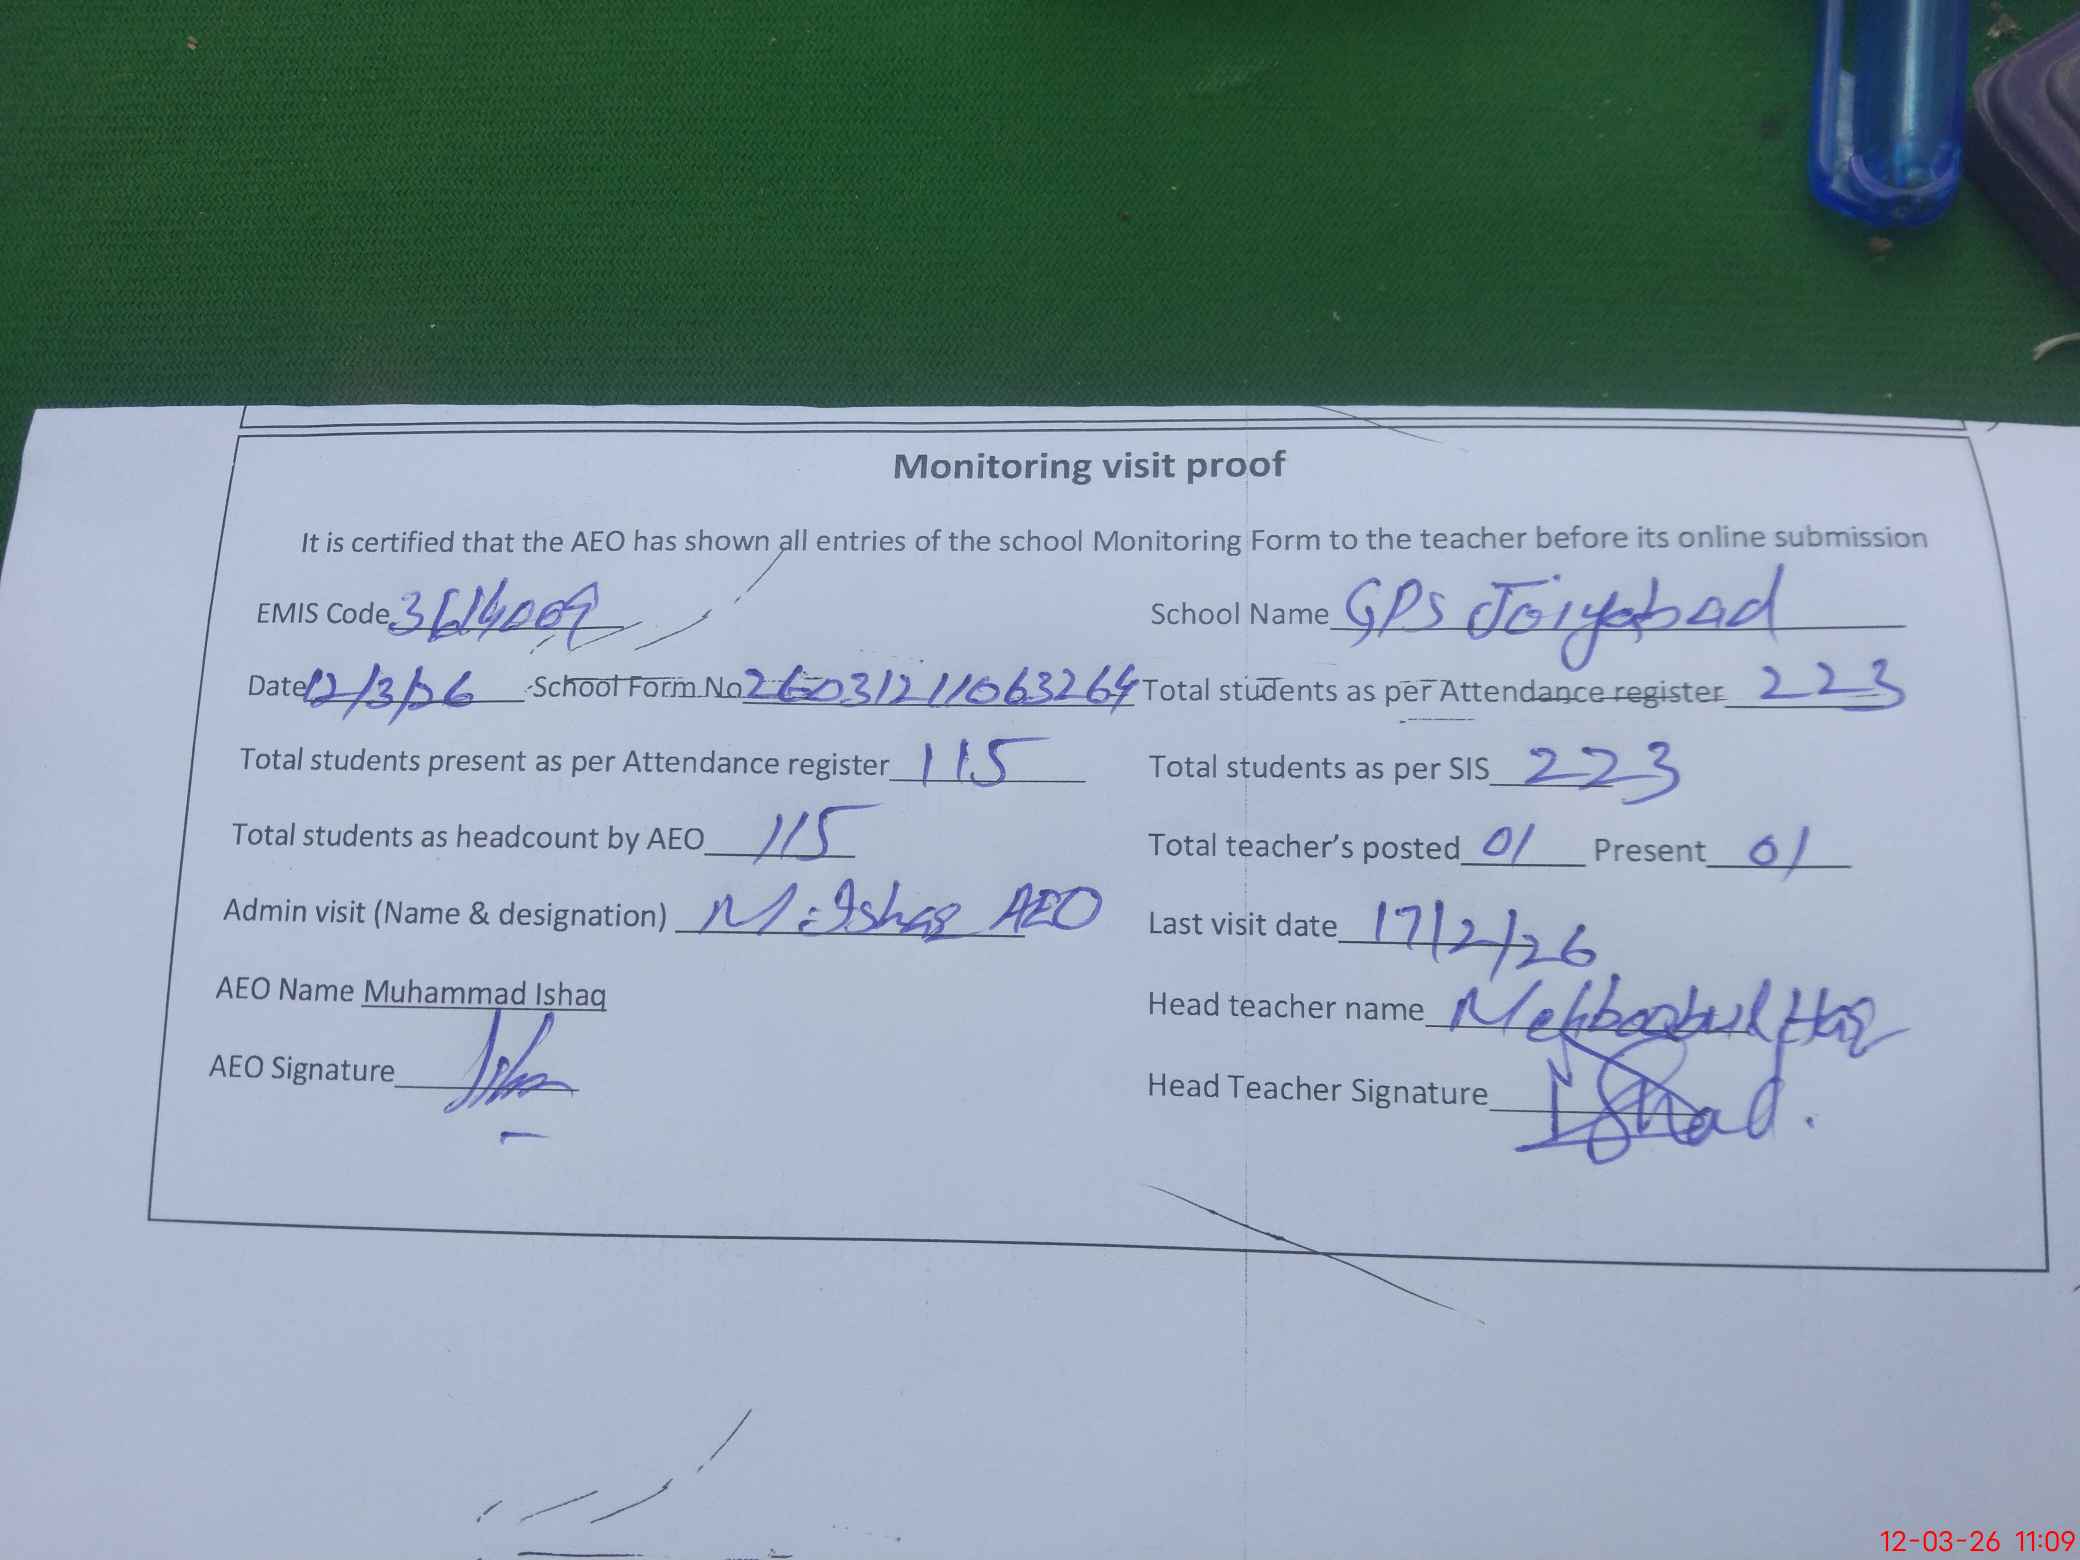 Monitoring visit proof
It is certified that the AEO has shown all entries of the school Monitoring Form to the teacher before its online submission
EMIS Code 3614009 School Name GPS Joiyabad
Date 12/3/26 School Form No 26031211063264 Total students as per Attendance register 223
Total students present as per Attendance register 115 Total students as per SIS 223
Total students as headcount by AEO 115 Total teacher's posted 01 Present 01
Admin visit (Name & designation) M. Ishaq AEO Last visit date 17/2/26
AEO Name Muhammad Ishaq Head teacher name Mehboobul Haq
AEO Signature Head Teacher Signature
12-03-26 11:09